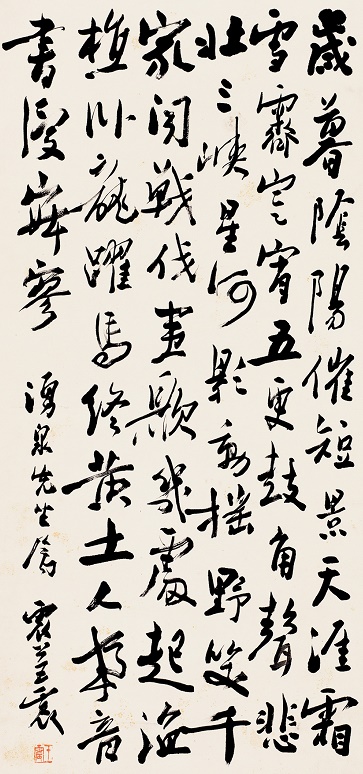 歲暮陰陽催短景天涯霜
雪霽寒宵五更鼓角聲悲
壯三峽星河影動搖野哭千
家聞戰伐夷歌幾處起漁
樵臥龍躍馬終黃土人事音
書漫寂寥
湧泉先生屬